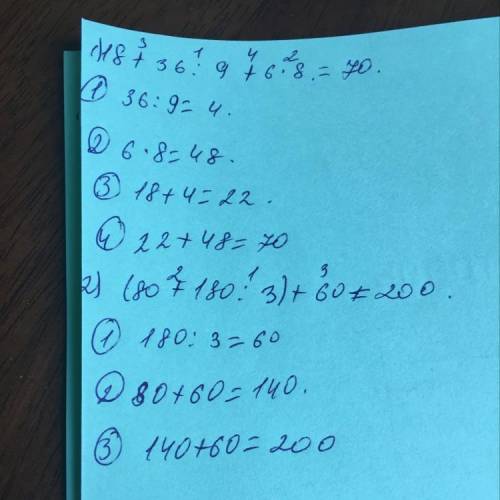 1) 18 +³ 36 :¹ 9 +⁴ 6 ·² 8 = 70.
① 36 : 9 = 4.
② 6 · 8 = 48.
③ 18 + 4 = 22.
④ 22 + 48 = 70
2) (80 +² 180 :¹ 3) +³ 60 = 200.
① 180 : 3 = 60
② 80 + 60 = 140.
③ 140 + 60 = 200